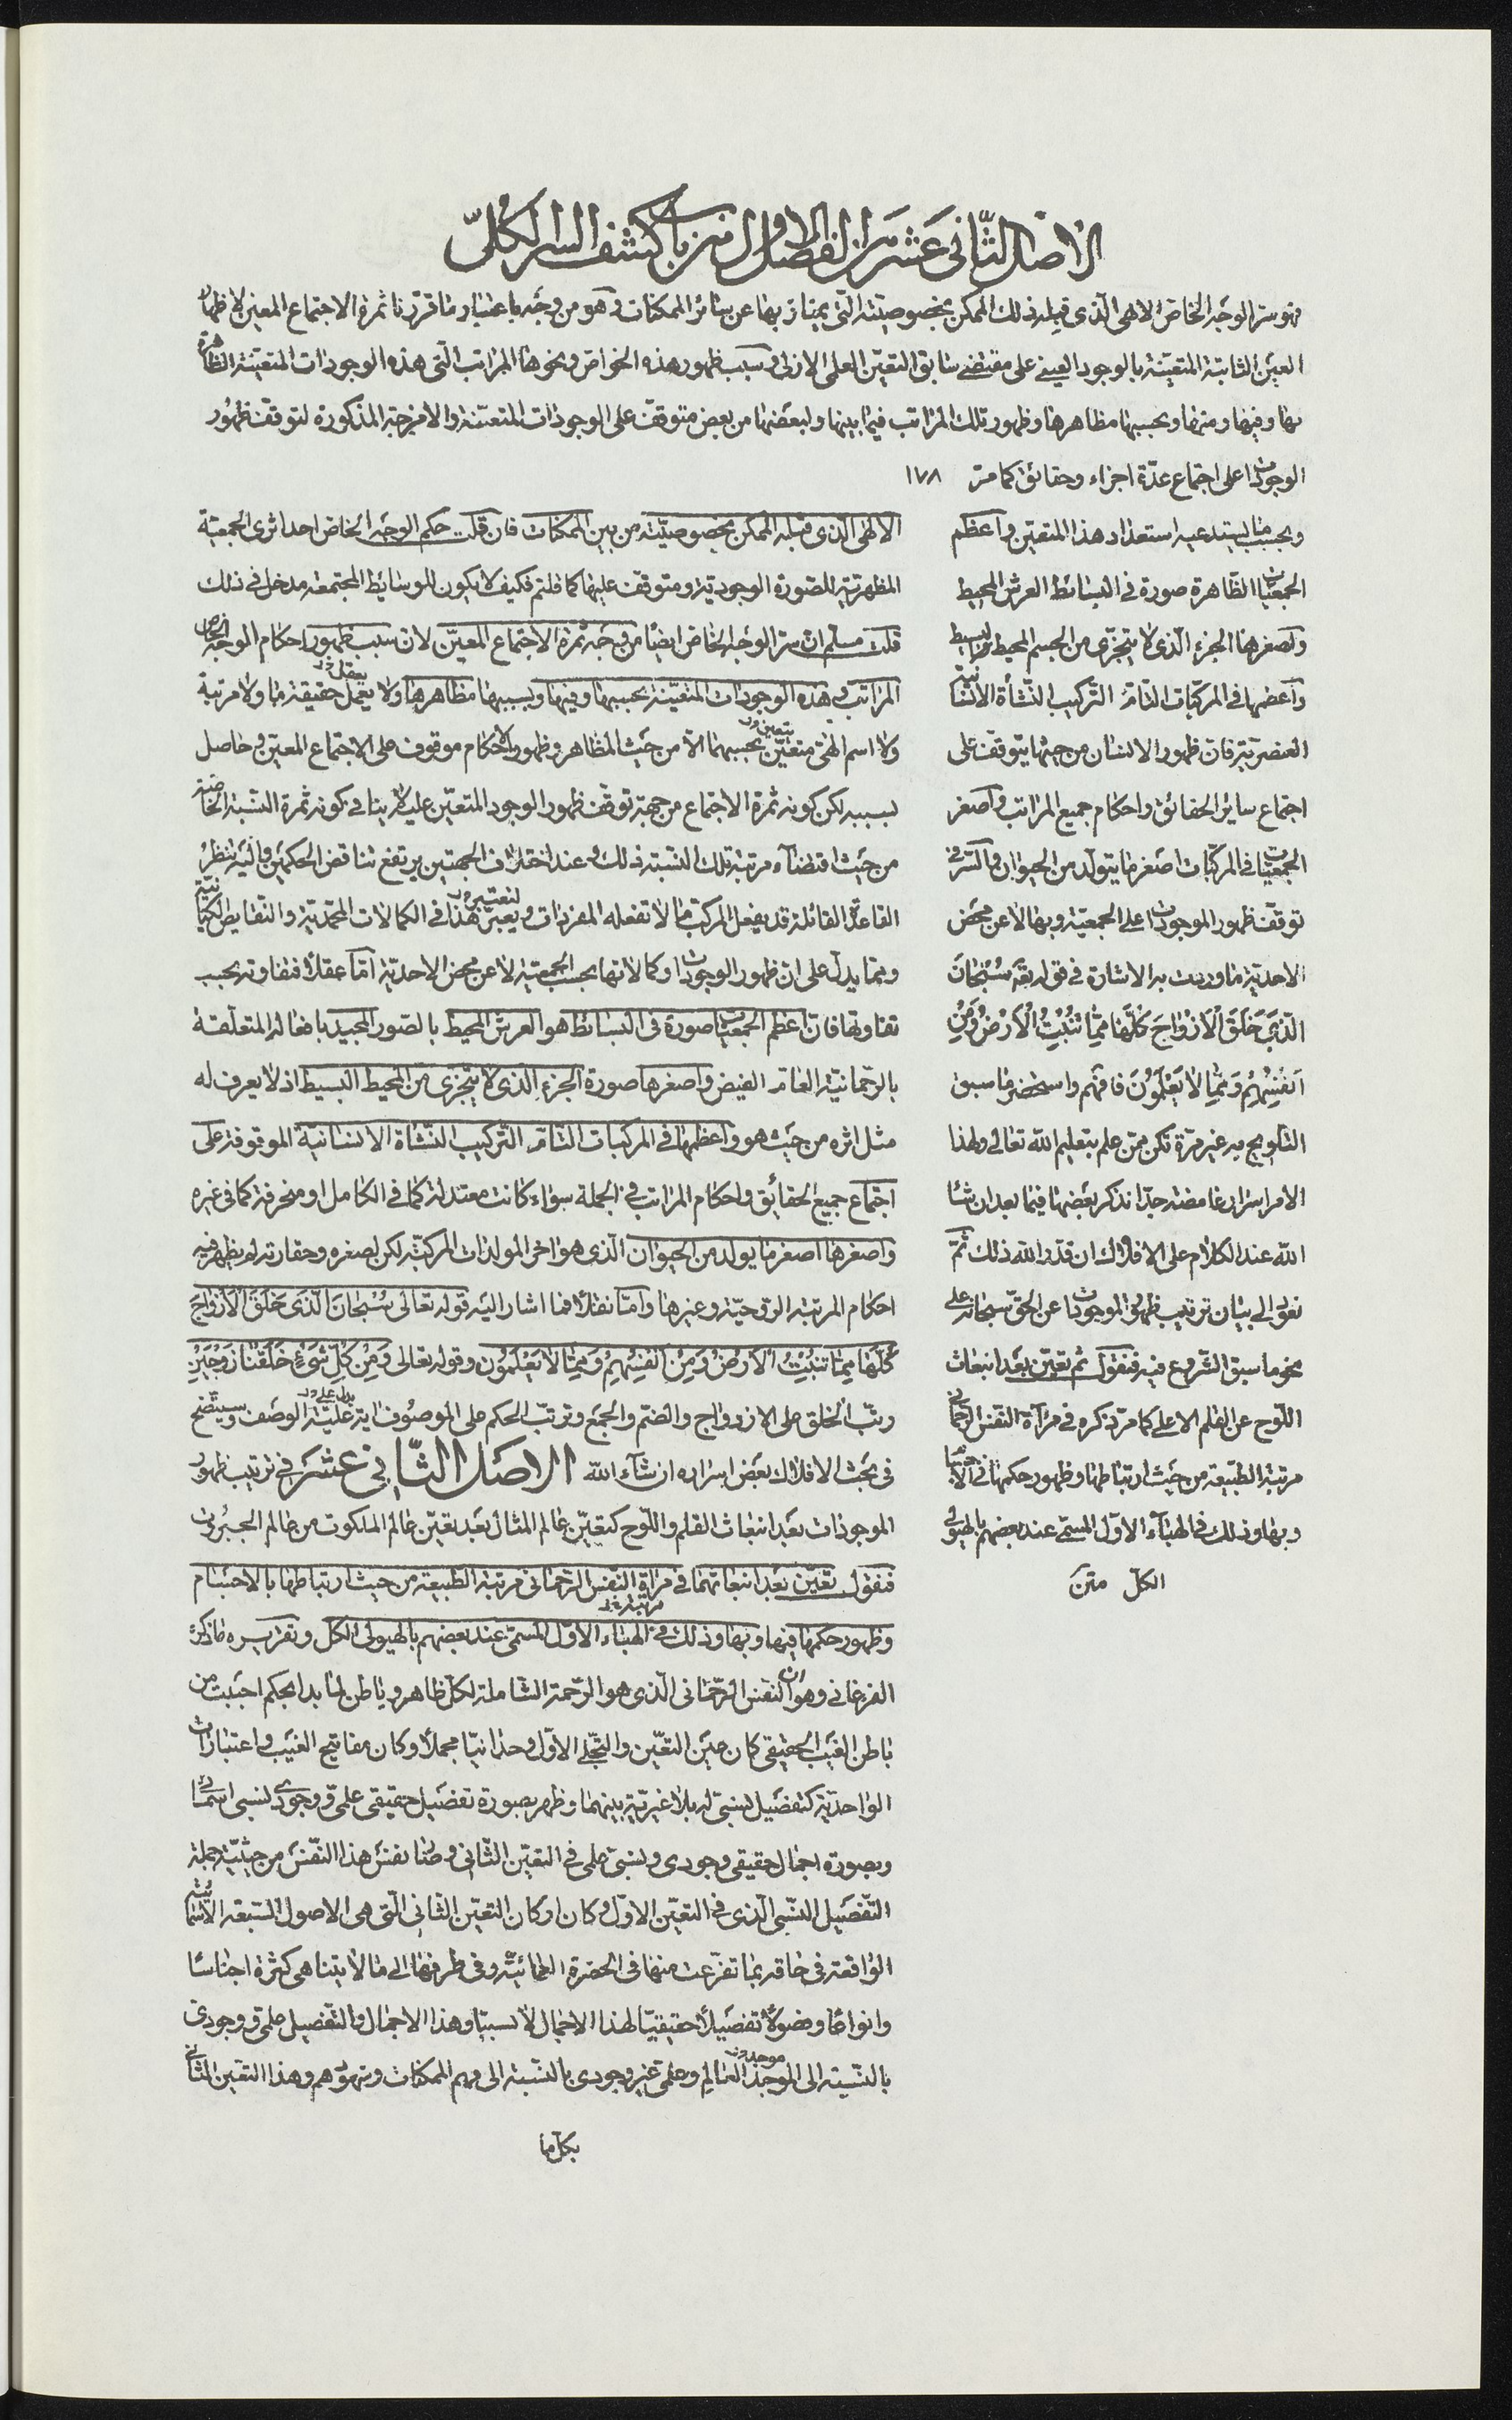 الاصل الثّانى عَشَر من الفصل الاول من باب كشف السر الكلّى
فهو سرّ الوجه الخاصّ الالهى الّذى قبِله ذلك الممكن بخصوصيّته الّتى يمتاز بها عن سائر الممكنات و هو من وجَه باعتبار ما قرّرنا ثمرة الاجتماع المعين لاظهار
العين الثابتة المتعيّنة بالوجود العينى على مقتضى سابق التعيّن العلمى الازلى و سبب ظهور هذه الخواصّ و نحوها المراتب الّتى هذه الوجودات المتعيّنة الظاهرة
بها و فيها و منها و بحسبها مظاهرها و ظهور تلك المراتب فيما بينها و لبعضها من بعض متوقف على الوجودات المتعيّنة و الامزجة المذكورة لتوقف ظهور
الوجودات على اجتماع عدّة اجزاء و حقائق كما مرّ ١٧٨
و بحسب ما يستدعيه استعداد هذا المتعين و اعظم
الجمعيّات الظّاهرة صورة فى البسائط العرش المحيط
و اصغرها الجزء الّذى لا يتجزّى من الجسم المحيط البسيط
و اعظمها فى المركبات التامّة التركيب النّشأة الانسانيّة
العنصريّة فان ظهور الانسان من حيثها يتوقف على
اجتماع سائر الحقائق و احكام جميع المراتب و اصغر
الجمعيّات فى المركّبات اصغر ما يتولّد من الحيوان و السّر فى
توقّف ظهور الموجودات على الجمعيّة و بها لا عن محض
الاحديّة ما وردت به الاشارة فى قوله تع سُبْحانَ
الّذى خَلَقَ الْأزْواجَ كُلَّها مِمّا تُنْبِتُ الْأرْضُ وَ مِنْ
اَنْفُسِهِمْ وَ مِمّا لا يَعْلَمُونَ فافهم و استحضر ما سبق
التلويح به غير مرّة تكن ممّن علم بتعليم اللّه تعالى و لهذا
الامر اسرار غامضة جدّا نذكر بعضها فيما بعد ان شاء
اللّه عند الكلام على الافلاك ان قدّر اللّه ذلك ثمّ
نعود الى بيان ترتيب ظهور الموجودات عن الحق سبحانه على
نحو ما سبق الشروع فيه فنقول ثم تعيّن بعد انبعاث
اللّوح عن القلم الاعلى كما مرّ ذكره فى مرآة النّفس الرحمانى
مرتبة الطبيعة من حيث ارتباطها و ظهور حكمها فى الاجسام
و بها و ذلك فى الهباء الاوّل المسمّى عند بعضهم بالهيولى
الكلّ متن
الالهى الّذى قبله الممكن بخصوصيّته من بين الممكنات فان قلت حكم الوجه الخاص احد اثرى الجمعية
المظهرية للصّورة الوجودية و متوقف عليها كما قلتم فكيف لا يكون للوسائط المجتمعة مدخل فى ذلك
قلت مسلم ان سرّ الوجه الخاص ايضا من وجه ثمرة الاجتماع المعيّن لان سبب ظهور احكام الوجه الخاص
المراتب و هذه الوجودات المتعيّنة بحسبها و فيها و بسببها مظاهرها و لا يعمل حقيقة ما و لا مرتبة
و لا اسم الهىّ متعيّن بحسبهما الّا من حيث المظاهر و ظهور الاحكام موقوف على الاجتماع المعيّن و حاصل
بسببه لكن كونه ثمرة الاجتماع من جهة توقف ظهور الوجود المتعيّن عليه لا ينافى كونه ثمرة النسبة الخاصّة
من حيث اقتضاء مرتبة تلك النسبة ذلك و عند اختلاف الجهتين يرتفع تناقض الحكمين و اليه ينظر
القاعدة القائلة قد يفعل المركّب ما لا تفعله المفردات و يعبر هذا فى الكمالات المحمّديّة و النقايط الكيانيّة
و ممّا يدلّ على ان ظهور الوجودات و كمالاتها بحسب الجمعيّة لا عن محض الاحديّة امّا عقلا فتفاوته بحسب
تفاوتها فان اعظم الجمعيّات صورة فى البسائط هو العرش المحيط بالصور المجيد بافعاله المتعلّقة
بالرحمانيّة العامّة الفيض و اصغرها صورة الجزء الذى لا يتجزى من المحيط البسيط اذ لا يعرف له
مثل اثره من حيث هو و اعظمها فى المركبات التامّة التركيب النّشاة الانسانيّة الموقوفة على
اجتماع جميع الحقائق و احكام المراتب فى الجملة سواء كانت معتدلة كما فى الكامل او منحرفة كما فى غيره
و اصغرها اصغر ما يولد من الحيوان الّذى هو اخر المولدات المركبة لكن لصغره و حقارته لم يظهر فيه
احكام المرتبة الروحيّة و غيرها و امّا نقلا فما اشار اليه قوله تعالى سُبْحانَ الَّذى خَلَقَ الْأزْواجَ
كُلَّها مِمّا تُنْبِتُ الْأرْضُ وَ مِنْ اَنْفُسِهِمْ وَ مِمّا لا يَعْلَمُونَ و قوله تعالى وَ مِنْ كُلِّ شَىْءٍ خَلَقْنا زَوْجَيْنِ
رتّب الخلق على الازدواج و الضمّ و الجمع و ترتّب الحكم على الموصوف اية عليّة الوصف و سيتضح
فى بحث الافلاك بعض اسراره ان شاء اللّه الاصل الثّانى عَشَر فى ترتيب ظهور
الموجودات بعد انبعاث القلم و اللّوح كتعيّن عالم المثال بعد تعيّن عالم الملكوت من عالم الجبروت
فنقول تعيّن بعد انبعاثهما فى مراة النّفس الرّحمانى مرتبة الطبيعة من حيث ارتباطها بالاجسام
و ظهور حكمها فيها و بها و ذلك فى الهباء الاوّل المسمّى عند بعضهم بالهيولى الكلّ و تقريره ما ذكره
الفرغانى و هو ان النفس الرّحمانى الّذى هو الرّحمة الشاملة لكلّ ظاهر و باطن لما بدا بحكم احببت من
باطن الغيب الحقيقى كان حين التعيّن و التجلى الاوّل وحدانيّا مجملا و كان مفاتيح الغيب و اعتبارات
الواحدية كتفصيل نسبىّ له بلا غيريّة بينهما و ظهر بصورة تفصيل حقيقى علمى و وجودى نسبى اسمائى
و بصورة اجمال حقيقى وجودى و نسبى علمى فى التعيّن الثّانى و هنا نفس هذا النّفس من حيثية جملة
التّفصيل النّسبى الّذى فى التعيّن الاوّل و كان اركان التعيّن الثّانى الّتى هى الاصول السّبعة الاسمائيّة
الواقعة فى حاقه بما تفرّعت منها فى الحضرة العمائيّة و فى طرفيها الى ما لا يتناهى كثرة اجناسا
و انواعا و فصولا تفصيلا حقيقيّا لهذا الاجمال لا نسبيّا و هذا الاجمال و التفصيل علمى و وجودى
بالنّسبة الى الموجد العالم و علمى غير وجودى بالنّسبة الى فهم الممكنات و توهمهم و هذا التعين الثّانى
بكلّ ما